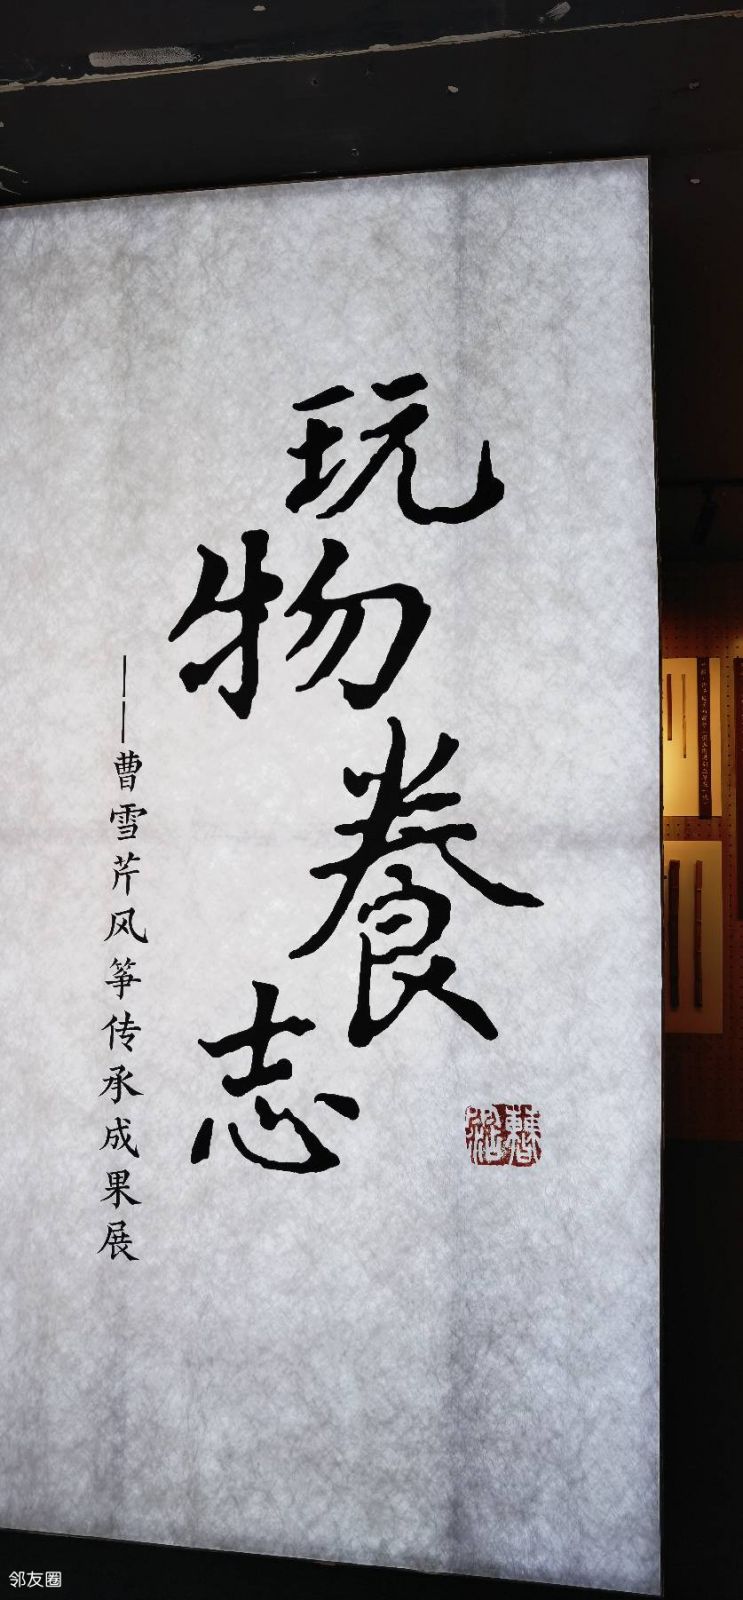 玩物養志
——曹雪芹风筝传承成果展
邻友圈